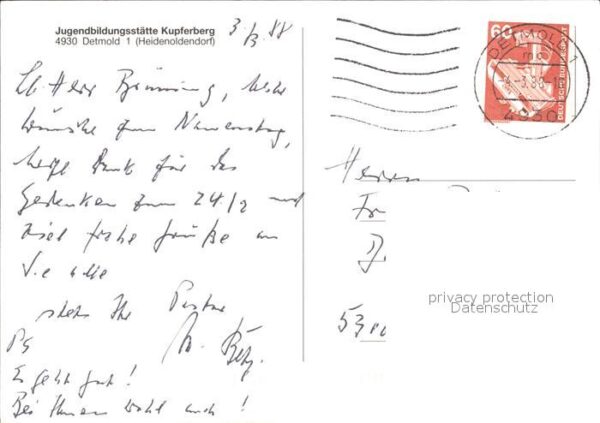 Jugendbildungsstätte Kupferberg
4930 Detmold 1 (Heidenoldendorf)
3/3 88
Lb Herr Brünning, beste
Wünsche zum Namenstag,
herzl Dank für das
Gedenken zum 24/2 und
viel frohe Grüße an
Sie alle
stets Ihr Pastor
PS
Es geht gut!
Bei Ihnen wohl auch!
60
DEUTSCHE BUNDESPOST
DETMOLD 1
4930
Herrn
Fr
53
privacy protection
Datenschutz